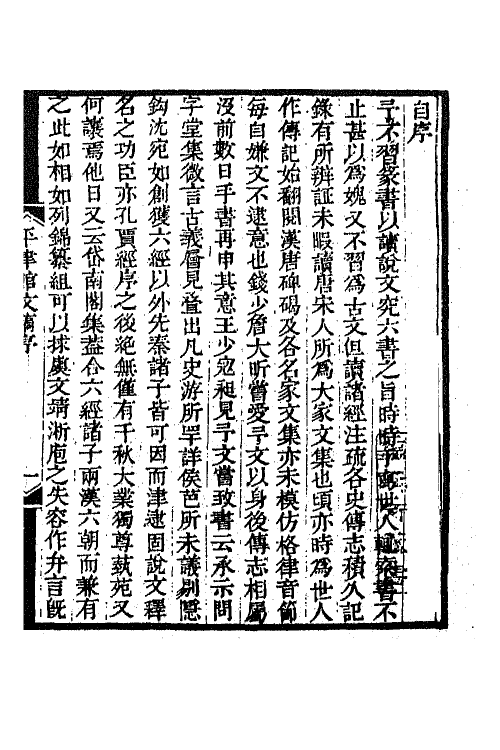 自序
予不習篆書以讀說文究六書之旨時時世人輒索書不
止甚以爲媿又不習爲古文但讀諸經注疏各史傳志積久記
錄有所辨証未暇讀唐宋人所爲大家文集也頃亦時爲世人
作傳記始翻閱漢唐碑碣及各名家文集亦未模仿格律音節
每自嫌文不逮意也錢少詹大昕嘗愛予文以身後傳志相屬
沒前數日手書再申其意王少寇昶見予文嘗致書云承示問
字堂集微言古義層見疊出凡史游所罕詳侯芭所未議剔隱
鈎沈宛如創獲六經以外先秦諸子皆可因而津逮固說文釋
名之功臣亦孔賈經序之後絶無僅有千秋大業獨尊蓺苑又
何讓焉他日又云岱南閣集葢合六經諸子兩漢六朝而兼有
之此如相如列錦纂組可以捄虞文靖淅庖之失容作弁言旣
平津館文稿序
一